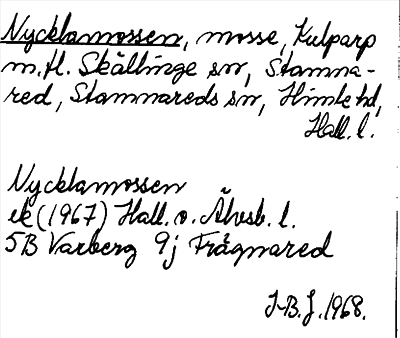 Nycklamossen, mosse, Kulparp
m.fl. Skällinge sn, Stamna-
red, Stamnareds sn, Himle hd,
Hall. l.
Nycklamossen
ek (1967) Hall. o. Älvsb. l.
5B Varberg 9j Frägnared
J-B.J. 1968.